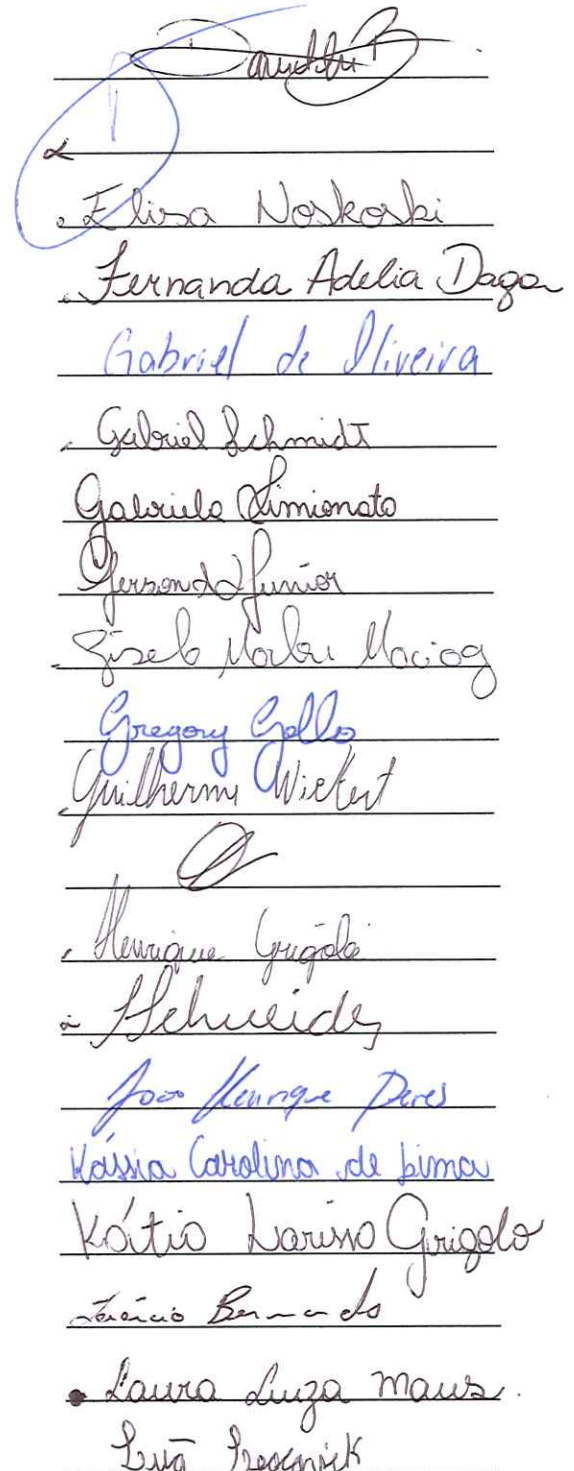 Elisa Noskoski
Fernanda Adelia Daga
Gabriel de Oliveira
Gabriel Schmidt
Gabriela Simionato
Gerson Junior
Maciog
Gregory Gallo
Guilherme Wickert
Henrique Grigolo
Schneider
João Henrique Peres
Kássia Carolina de Lima
Kátia Larissa Grigolo
Bernardo
Laura Luiza Maus.
Luã